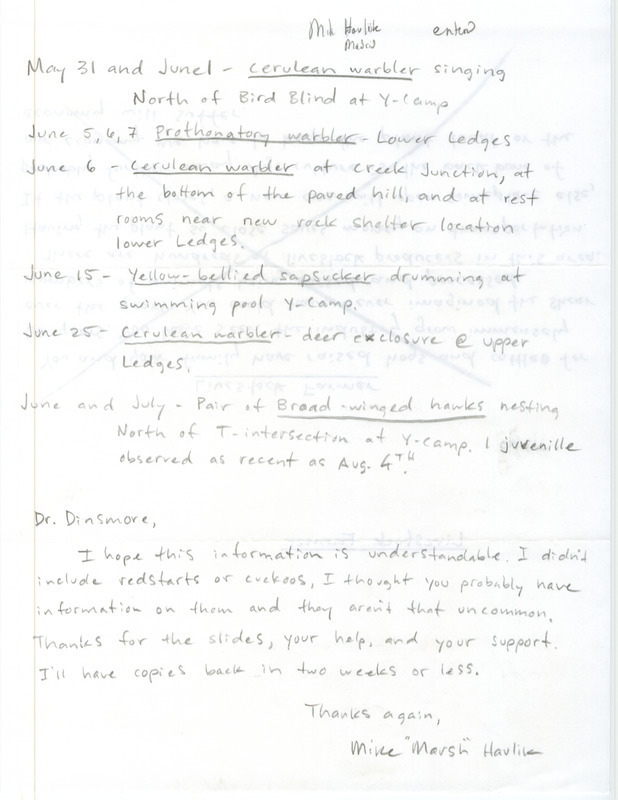 Mik Havlik entered
Madrid
May 31 and June 1 - Cerulean warbler singing
North of Bird Blind at Y-Camp
June 5, 6, 7 Prothonotary warbler - Lower Ledges
June 6 - Cerulean warbler at Creek Junction, at
the bottom of the paved hill, and at rest
rooms near new rock shelter location
lower Ledges.
June 15 - Yellow-bellied sapsucker drumming at
swimming pool Y-Camp.
June 25 - Cerulean warbler - deer exclosure @ upper
Ledges.
June and July - Pair of Broad-winged hawks nesting
North of T-intersection at Y-Camp. 1 juvenille
observed as recent as Aug. 4TH.
Dr. Dinsmore,
I hope this information is understandable. I didn't
include redstarts or cuckoos, I thought you probably have
information on them and they aren't that uncommon.
Thanks for the slides, your help, and your support.
I'll have copies back in two weeks or less.
Thanks again,
Mike "Marsh" Havlik